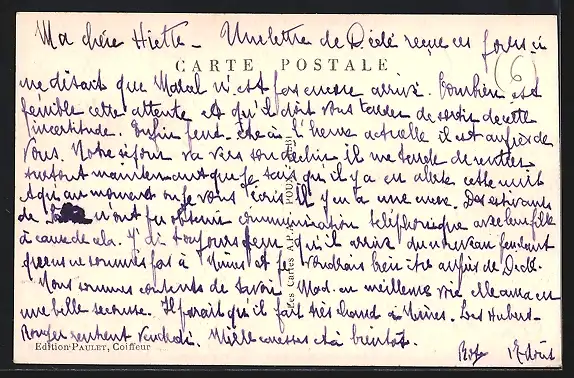 Ma chère Hiette - Une lettre de Dédé reçue ces jours ci
(6)
CARTE POSTALE
me disait que Marcel n'est pas encore arrivé. Combien est
pénible cette attente et qu'il doit vous tarder de sortir de cette
incertitude. Enfin peut-être à l'heure actuelle il est auprès de
vous. Notre séjour va vers son déclin il me tarde de rentrer
surtout maintenant que je sais qu'il y a eu alerte cette nuit
et qu'au moment où je vous écris il y en a une autre. Des estivants
de n'ont pu obtenir communication téléphonique avec leur fille
à cause de cela. J'ai toujours peur qu'il arrive du nouveau pendant
que nous ne sommes pas à Nîmes et je voudrais bien être auprès de Dédé.
Nous sommes contents de savoir Mad. en meilleure voie elle a eu
une belle secousse. Il paraît qu'il fait très chaud à Nîmes. Les Hubert-
Roger rentrent Vendredi. Mille caresses et à bientôt.
Les Cartes A.P.A. POUX, ALBI
Edition PAULET, Coiffeur